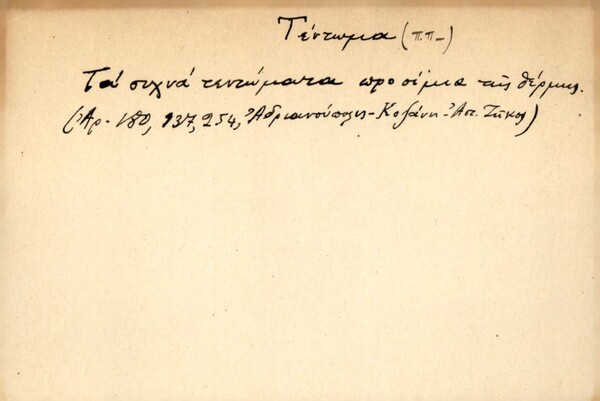 Τέντωμα (π.π-)
Τά συχνά τεντώματα προοίμια τῆς θέρμης.
(Ἀρ. 180, 137, 254, Ἀδριανούπολις - Κοζάνη - Ἀστ. Ζήκος)